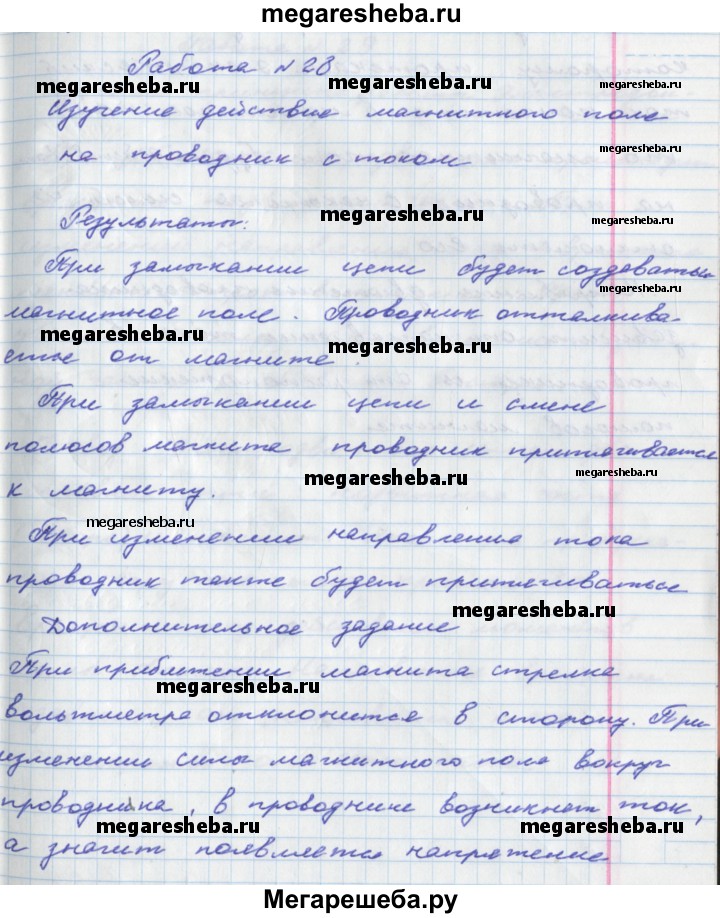 megaresheba.ru
Работа №28
megaresheba.ru
megaresheba.ru
Изучение действия магнитного поля
на проводник с током
Результаты:
megaresheba.ru
megaresheba.ru
При замыкании цепи будет создаваться
megaresheba.ru
магнитное поле. Проводник отталкива-
megaresheba.ru
megaresheba.ru
ется от магнита.
При замыкании цепи и смене
полюсов магнита проводник притягивается
megaresheba.ru
megaresheba.ru
к магниту.
megaresheba.ru
При изменении направления тока
проводник также будет притягиваться
megaresheba.ru
Дополнительное задание
При приближении магнита стрелка
megaresheba.ru
вольтметра отклонится в сторону. При
изменении силы магнитного поля вокруг
проводника, в проводнике возникнет ток,
megaresheba.ru
megaresheba.ru
а значит появляется напряжение
Мегарешеба.ру